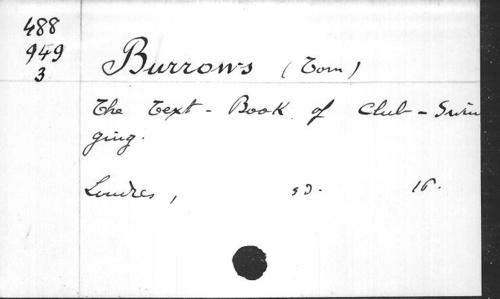 488
949
3
Burrows (Tom)
The Text-Book of Club-Swin
ging.
Londres, s d. 16.